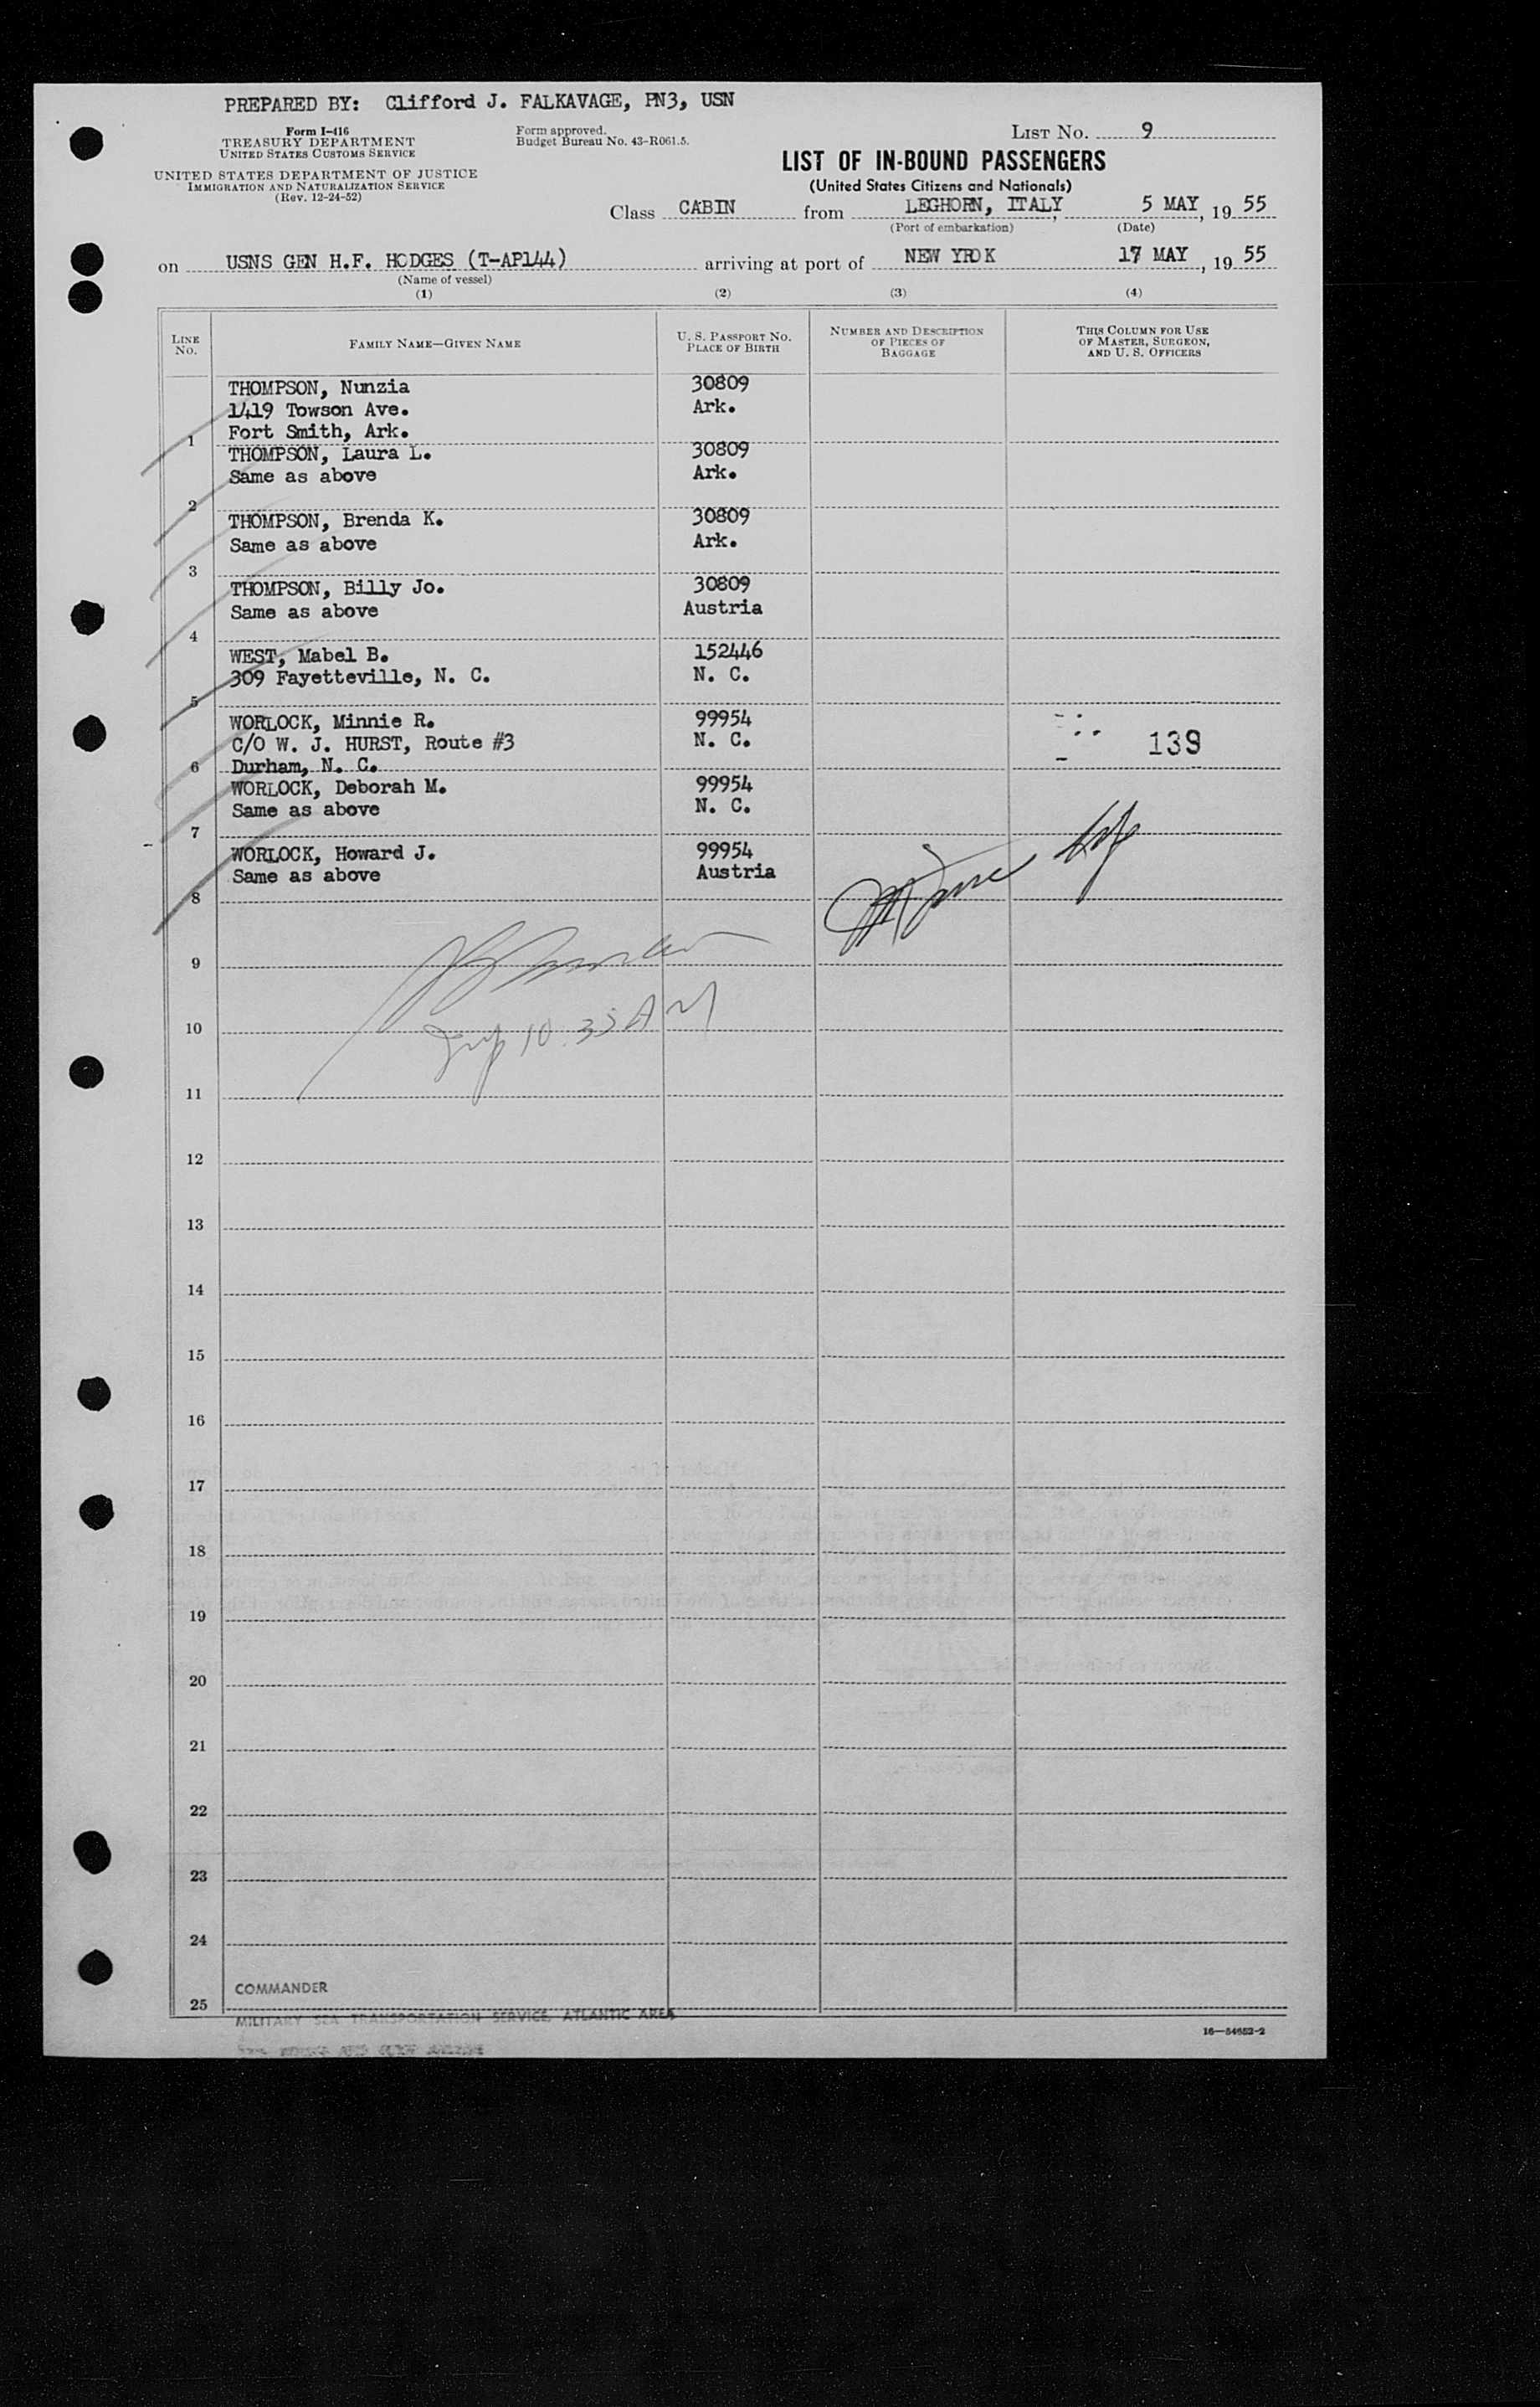 PREPARED BY: Clifford J. FALKAVAGE, PN3, USN
Form I-416
TREASURY DEPARTMENT
UNITED STATES CUSTOMS SERVICE
UNITED STATES DEPARTMENT OF JUSTICE
IMMIGRATION AND NATURALIZATION SERVICE
(Rev. 12-24-52)
Form approved.
Budget Bureau No. 43-R061.5.
LIST NO. 9
LIST OF IN-BOUND PASSENGERS
(United States Citizens and Nationals)
Class CABIN from LEGHORN, ITALY, 5 MAY, 19 55
(Port of embarkation) (Date)
on USNS GEN H.F. HODGES (T-AP144) arriving at port of NEW YROK 17 MAY, 19 55
(Name of vessel)
(1) (2) (3) (4)
LINE NO. FAMILY NAME—GIVEN NAME U. S. PASSPORT NO. PLACE OF BIRTH NUMBER AND DESCRIPTION OF PIECES OF BAGGAGE THIS COLUMN FOR USE OF MASTER, SURGEON, AND U. S. OFFICERS
THOMPSON, Nunzia 30809
1419 Towson Ave. Ark.
1 Fort Smith, Ark.
THOMPSON, Laura L. 30809
Same as above Ark.
2
THOMPSON, Brenda K. 30809
Same as above Ark.
3
THOMPSON, Billy Jo. 30809
Same as above Austria
4
WEST, Mabel B. 152446
309 Fayetteville, N. C. N. C.
5
WORLOCK, Minnie R. 99954
C/O W. J. HURST, Route #3 N. C. 139
6 Durham, N. C.
WORLOCK, Deborah M. 99954
Same as above N. C.
7
WORLOCK, Howard J. 99954
Same as above Austria
8
9
10 10:35 AM
11
12
13
14
15
16
17
18
19
20
21
22
23
24
COMMANDER
25
MILITARY SEA TRANSPORTATION SERVICE, ATLANTIC AREA
16—54652-2